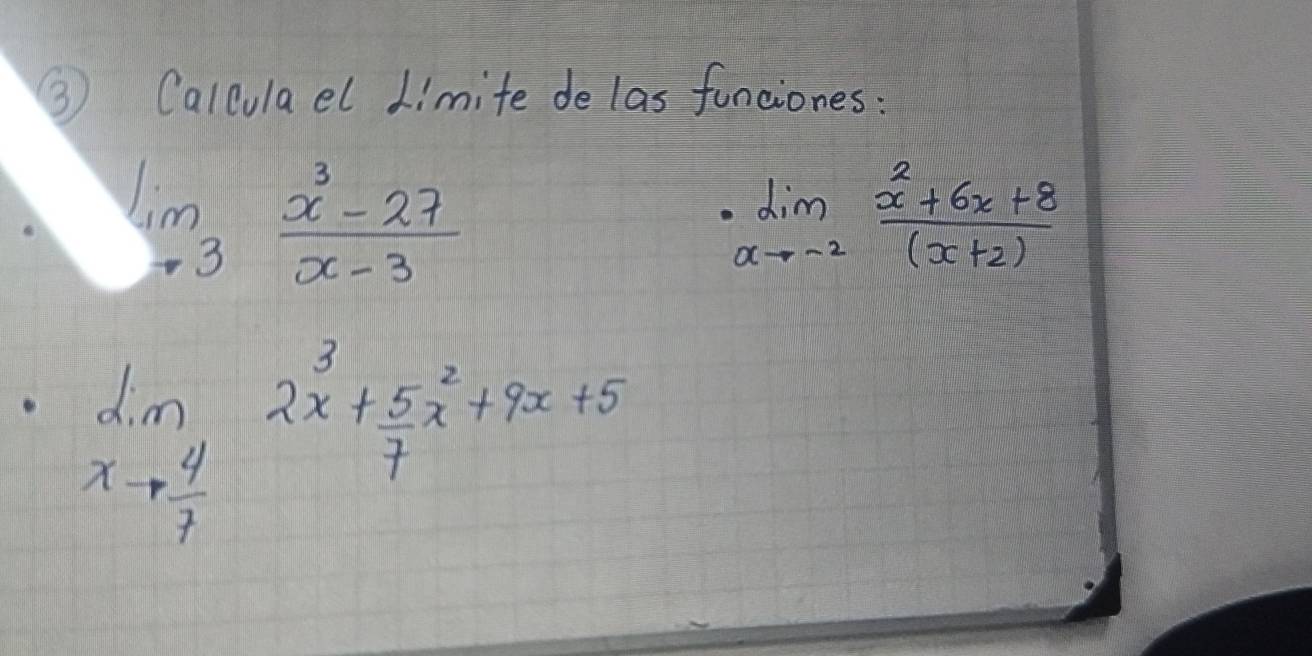 ③ Calcula el Límite de las funciones:
• Lim → 3 (x³ - 27)/(x - 3) • Lim x → -2 (x² + 6x + 8)/(x + 2)
• Lim x → 4/7 2x³ + 5/7 x² + 9x + 5